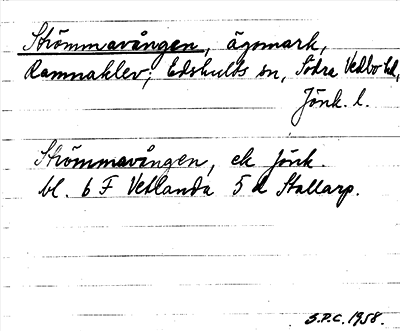 Strömmavången, ägomark,
Ramnaklev; Edshults sn, Södra Vedbo hd,
Jönk. l.
Strömmavången, ek Jönk.
bl. 6 F Vetlanda 5 d Stallarp.
S.P.C. 1958.